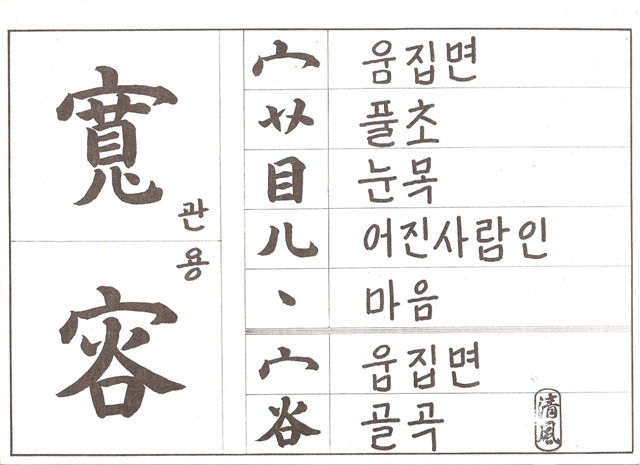 寬
관
容
용
宀 움집면
艹 풀초
目 눈목
儿 어진사람인
丶 마음
宀 웁집면
谷 골곡
清風